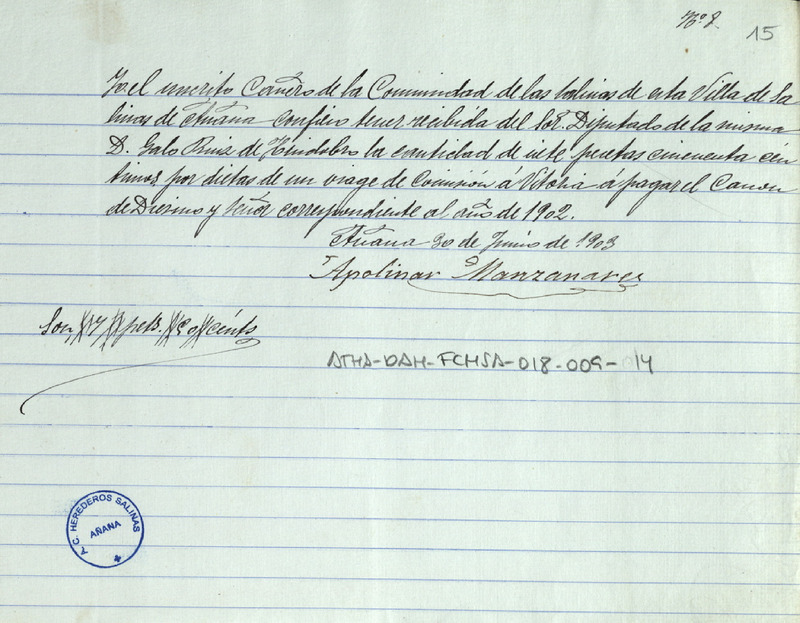 Nº 8.
15
Yo el inscrito Cañero de la Comunidad de las Salinas de esta Villa de Sa
linas de Añana confieso tener recibida del Sor. Diputado de la misma
D. Galo Ruiz de Hindobro la cantidad de siete pesetas cincuenta cén
timos, por dietas de un viage de Comisión á Vitoria á pagar el Canon
de Diesmo y Señor correspondiente al año de 1902.
Añana 30 de Junio de 1903
Apolinar Manzanares
Son, 7 pets. 50 cénts
ATHA-DAH-FCHSA-018-009-14
T. C. HEREDEROS SALINAS
AÑANA